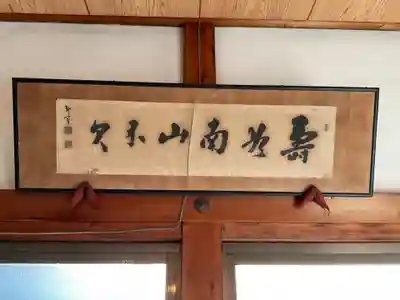 壽如南山不欠